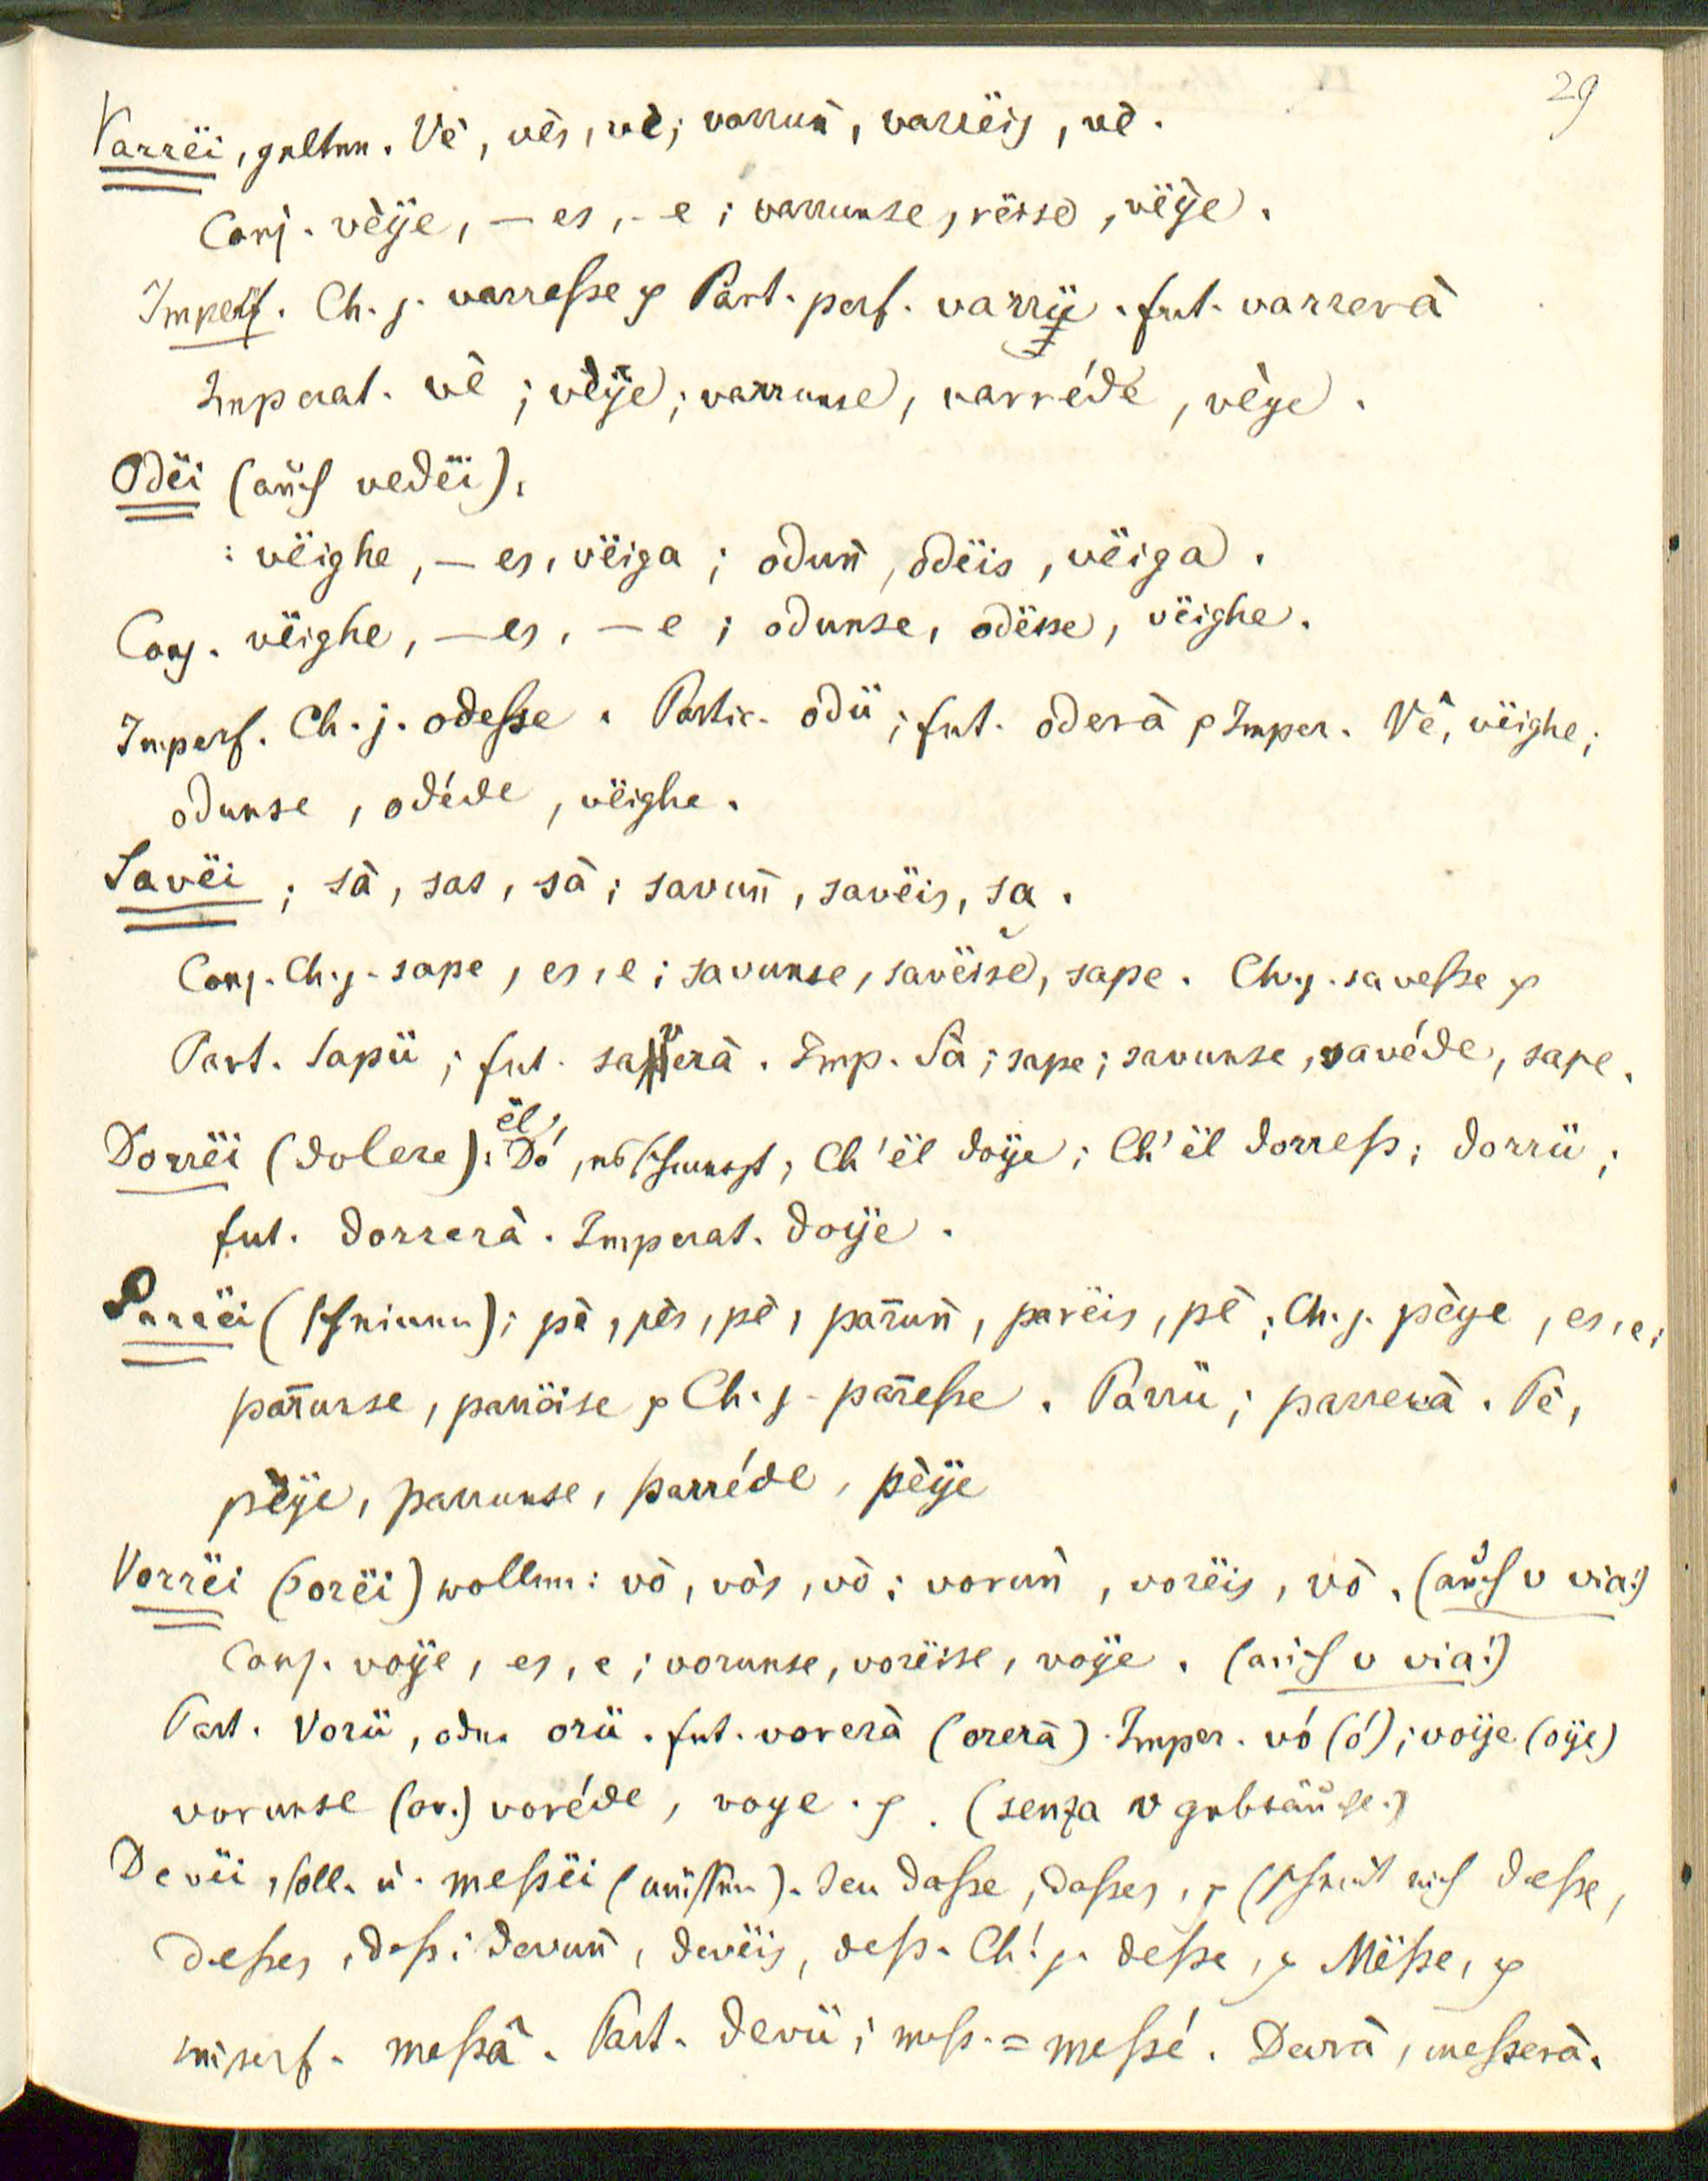 29
Varrëi, gelten. Vè, vès, vè; varruñ, varrëis, vè.
Conj. vèÿe, — es, - e; varrunse, rëisse, vëÿe.
Imperf. Ch. j. varreſse ꝛc Part. perf. varrü. fut. varrerà
Imperat. vè; vèÿe; varrunse, varréde, vèye.
Odëi (auch vedëi).
: vëighe, — es, vëiga; oduñ, odëis, vëiga.
Conj. vëighe, — es, — e; odunse, odëisse, vëighe.
Imperf. Ch. j. odeſse. Partic. odü; fut. oderà ꝛc Imper. Vê, vëighe;
odunse, odéde, vëighe.
Savëi; sà, sas, sà; savuñ, savëis, sa.
Conj. Ch. j. sape, es, e; savunse, savëise, sape. Ch. j. saveſse ꝛc
Part. Sapü; fut. saverà. Imp. Sà; sape; savunse, savéde, sape.
Dorrëi (dolere): ël Dó, es schmerzt; Ch' ël doÿe; Ch' ël dorreſs; dorrü;
fut. dorrerà. Imperat. doÿe.
Parrëi (scheinen); pè, pès, pè, par̄uñ, parëis, pè; Ch. j. pèye, es, e;
par̄unse, parrëise ꝛc Ch. j. par̄eſse. Parrü; parrerà. Pè,
pèÿe, parrunse, parréde, pèÿe
Vorrëi (orëi) wollen: vò, vòs, vò; voruñ, vorëis, vò. (auch v via!)
Conj. voÿe, es, e; vorunse, vorëise, voÿe. (auch v via!)
Part. Vorü, oder orü. fut. vorerà (orerà). Imper. vó (ó); voÿe (oÿe)
vorunse (or.) voréde, voye. ꝛc. (senza v gebräuchl.)
Devëi, soll. u. meſsëi (müssen). Jeu daſse, daſses, ꝛc (schreib auch daeſse,
daeſses, daeſs; devuñ, devëis, deſs. Ch! j. deſse, ꝛc Mëſse, ꝛc
imperf. meſsâ. Part. devü; meſs. = meſsé. Devrà, meſserà.